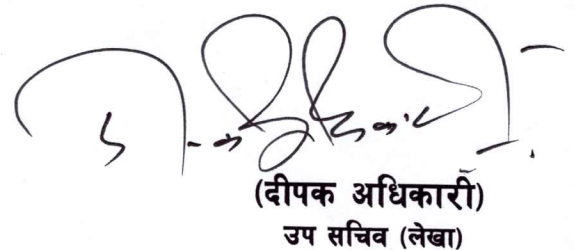 (दीपक अधिकारी)
उप सचिव (लेखा)